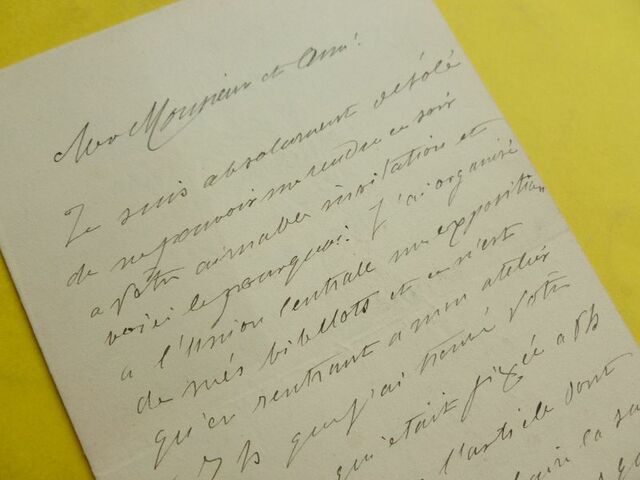 Mon Monsieur et Ami!
Je suis absolument désolé
de ne pouvoir me rendre ce soir
a Votre aimable invitation et
voici le pourquoi. J'ai organisé
a l'Union Centrale une exposition
de mes bibelots et ce n'est
qu'en rentrant a mon atelier
7h que j'ai trouvé Votre
qu'était fixée a 8h
l'article dont